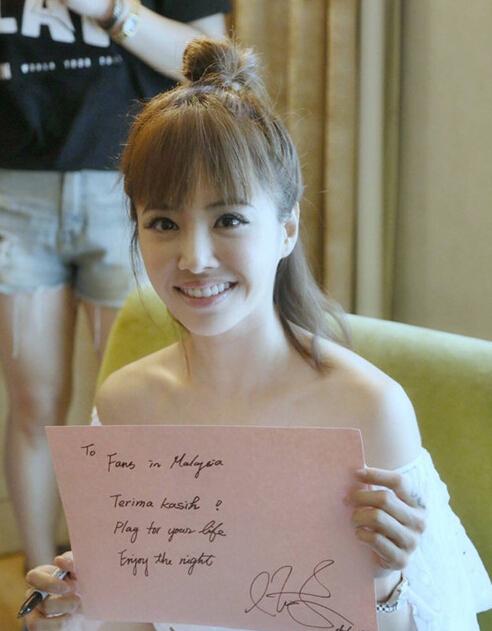 PLAY
WORLD TOUR
To Fans in Malaysia
Terima kasih ?
Play for your life
Enjoy the night